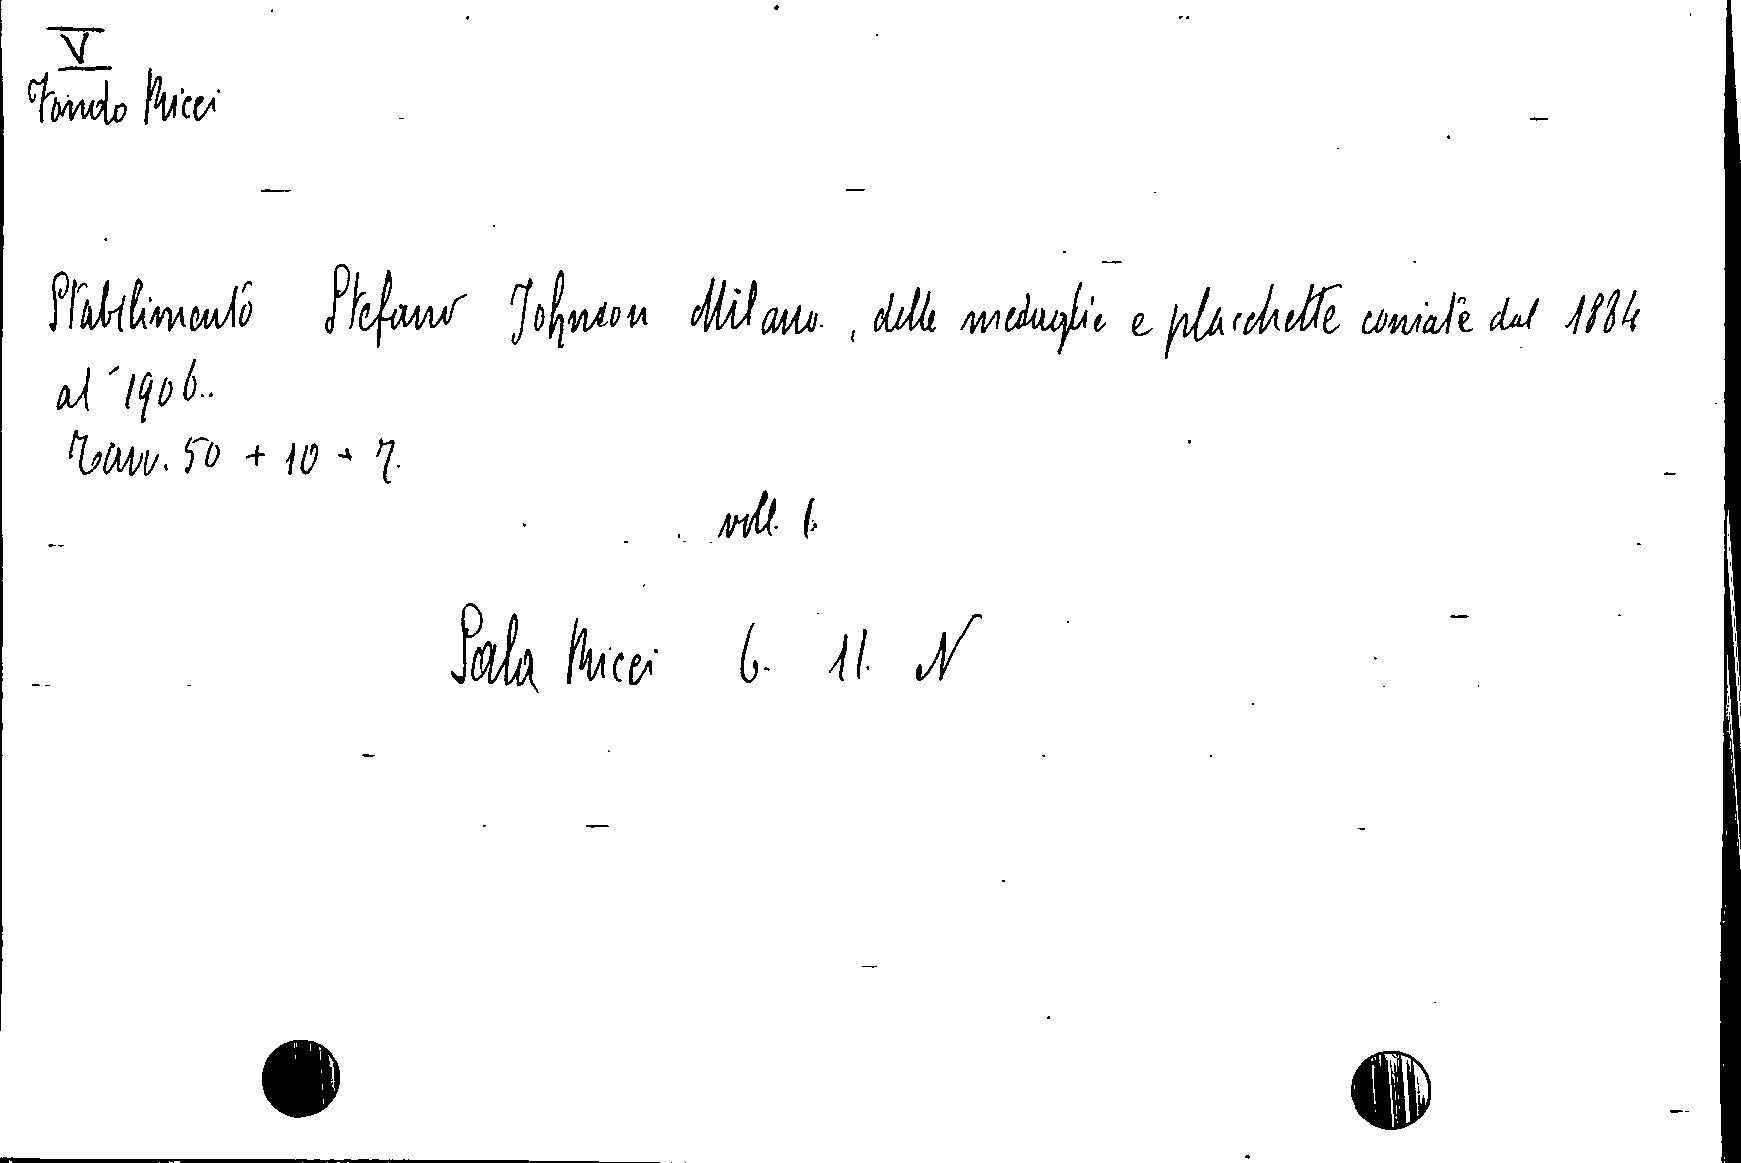 V
Fondo Ricci
Stabilimento Stefano Johnson Milano, delle medaglie e placchette coniate dal 1884
al 1906.
Tavv. 50 + 10 + 7.
voll. 6.
Sala Ricci 6. 11. N